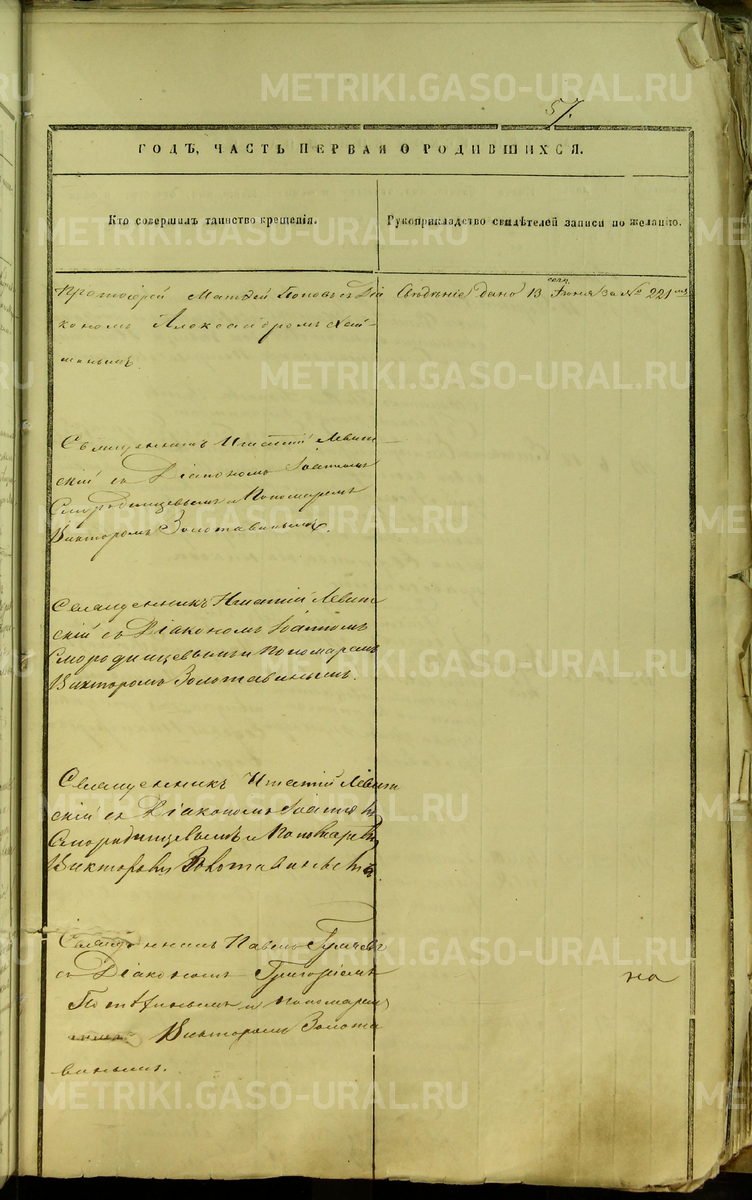 57.
ГОДЪ, ЧАСТЬ ПЕРВАЯ О РОДИВШИХСЯ.
Кто совершилъ таинство крещенія.
Рукоприкладство свидѣтелей записи по желанію.
Протоіерей Матѳей Поповъ съ Діа
кономъ Александромъ
Свѣдѣніе дано 13 Іюня за № 221
Священникъ Игнатій Левит
скій съ Діакономъ Іоанномъ
Смородинцевымъ и Пономаремъ
Викторомъ Золотавинымъ.
Священникъ Игнатій Левит
скій съ Діакономъ Іоанномъ
Смородинцевымъ и Пономаремъ
Викторомъ Золотавинымъ.
Священникъ Игнатій Левит
скій съ Діакономъ Іоанномъ
Смородинцевымъ и Пономаремъ
Викторомъ Золотавинымъ.
Священникъ Павелъ
съ Діакономъ Григоріемъ
и пономаремъ
Викторомъ Золота
винымъ.
на
METRIKI.GASO-URAL.RU